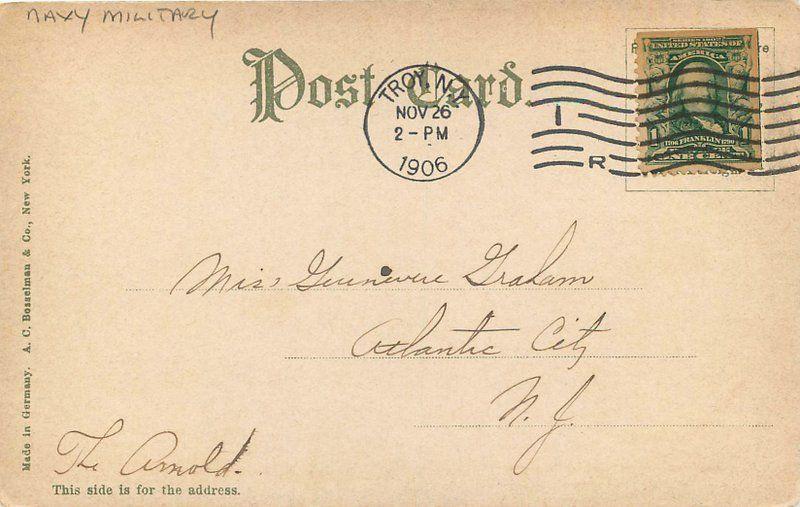 NAVY MILITARY
Post Card.
TROY, N.Y.
NOV 26
2-PM
1906
I
R
SERIES 1902
UNITED STATES OF
AMERICA
1706 FRANKLIN 1790
ONE CENT
Miss Guenevere Graham
Atlantic City
N. J.
The Arnold.
This side is for the address.
Made in Germany. A. C. Bosselman & Co., New York.